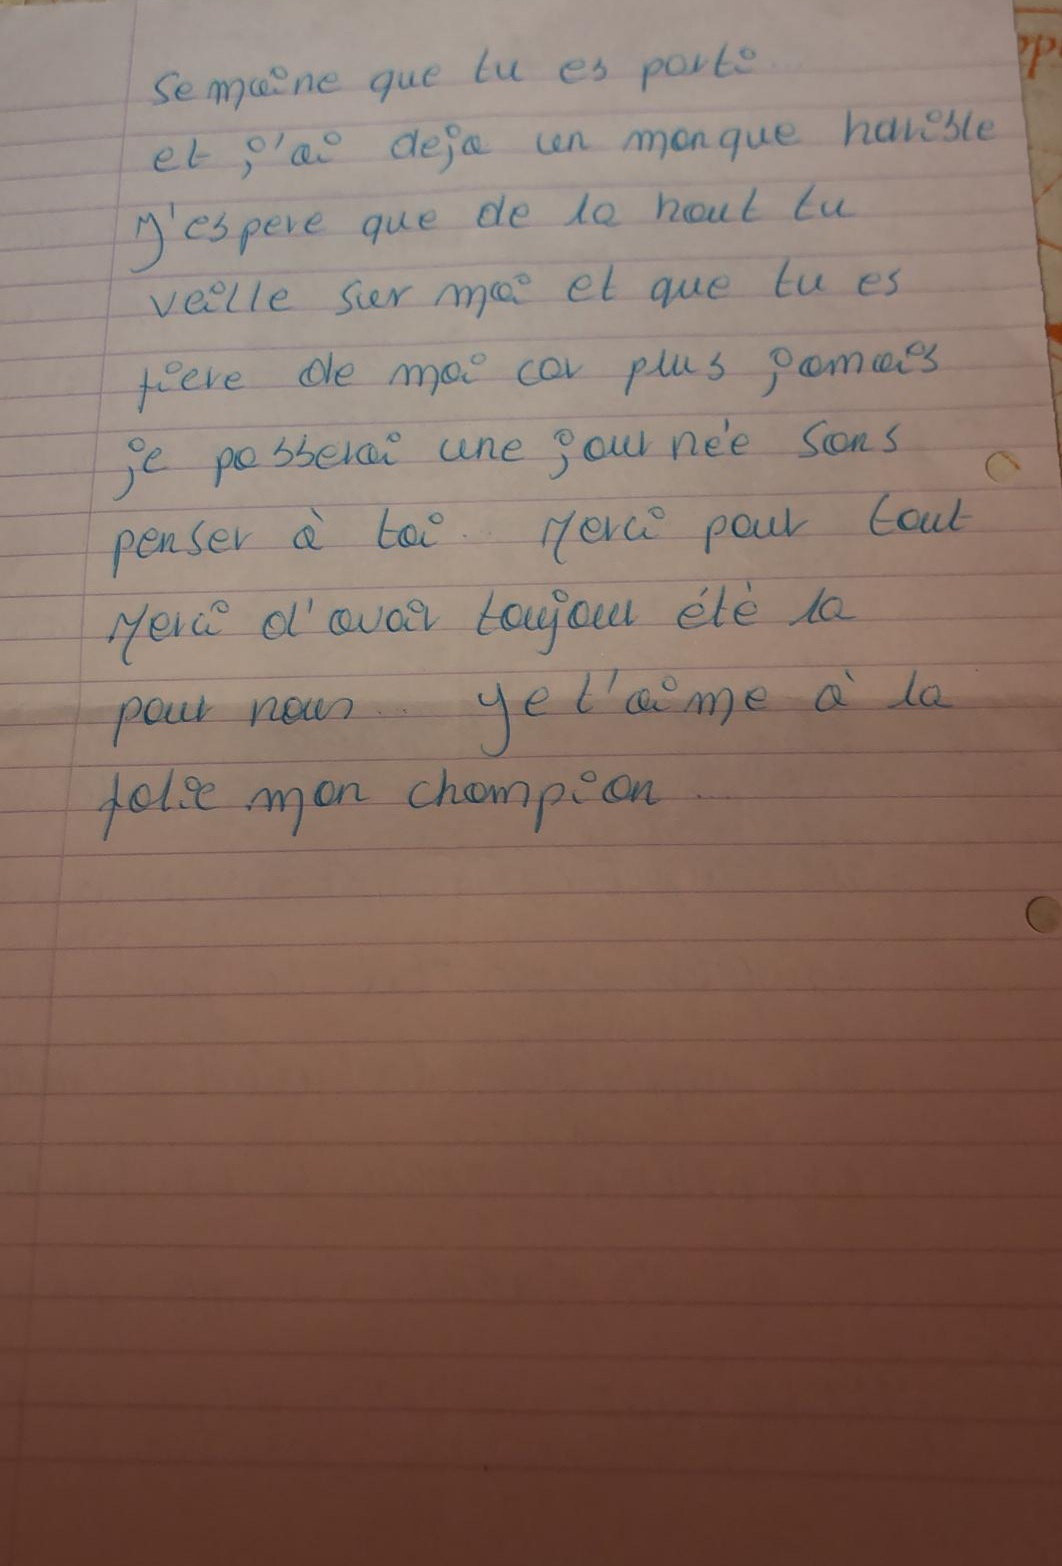 semaine que tu es parti
et j'ai deja un manque horible
J'espere que de la haut tu
veille sur moi et que tu es
fiere de moi car plus jamais
je passerai une journée sans
penser à toi.. Merci pour tout
Merci d'avoir toujour été la
pour nous.. Je t'aime à la
folie mon champion..